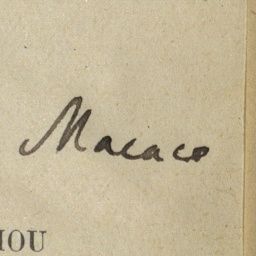 Macaco
IOU